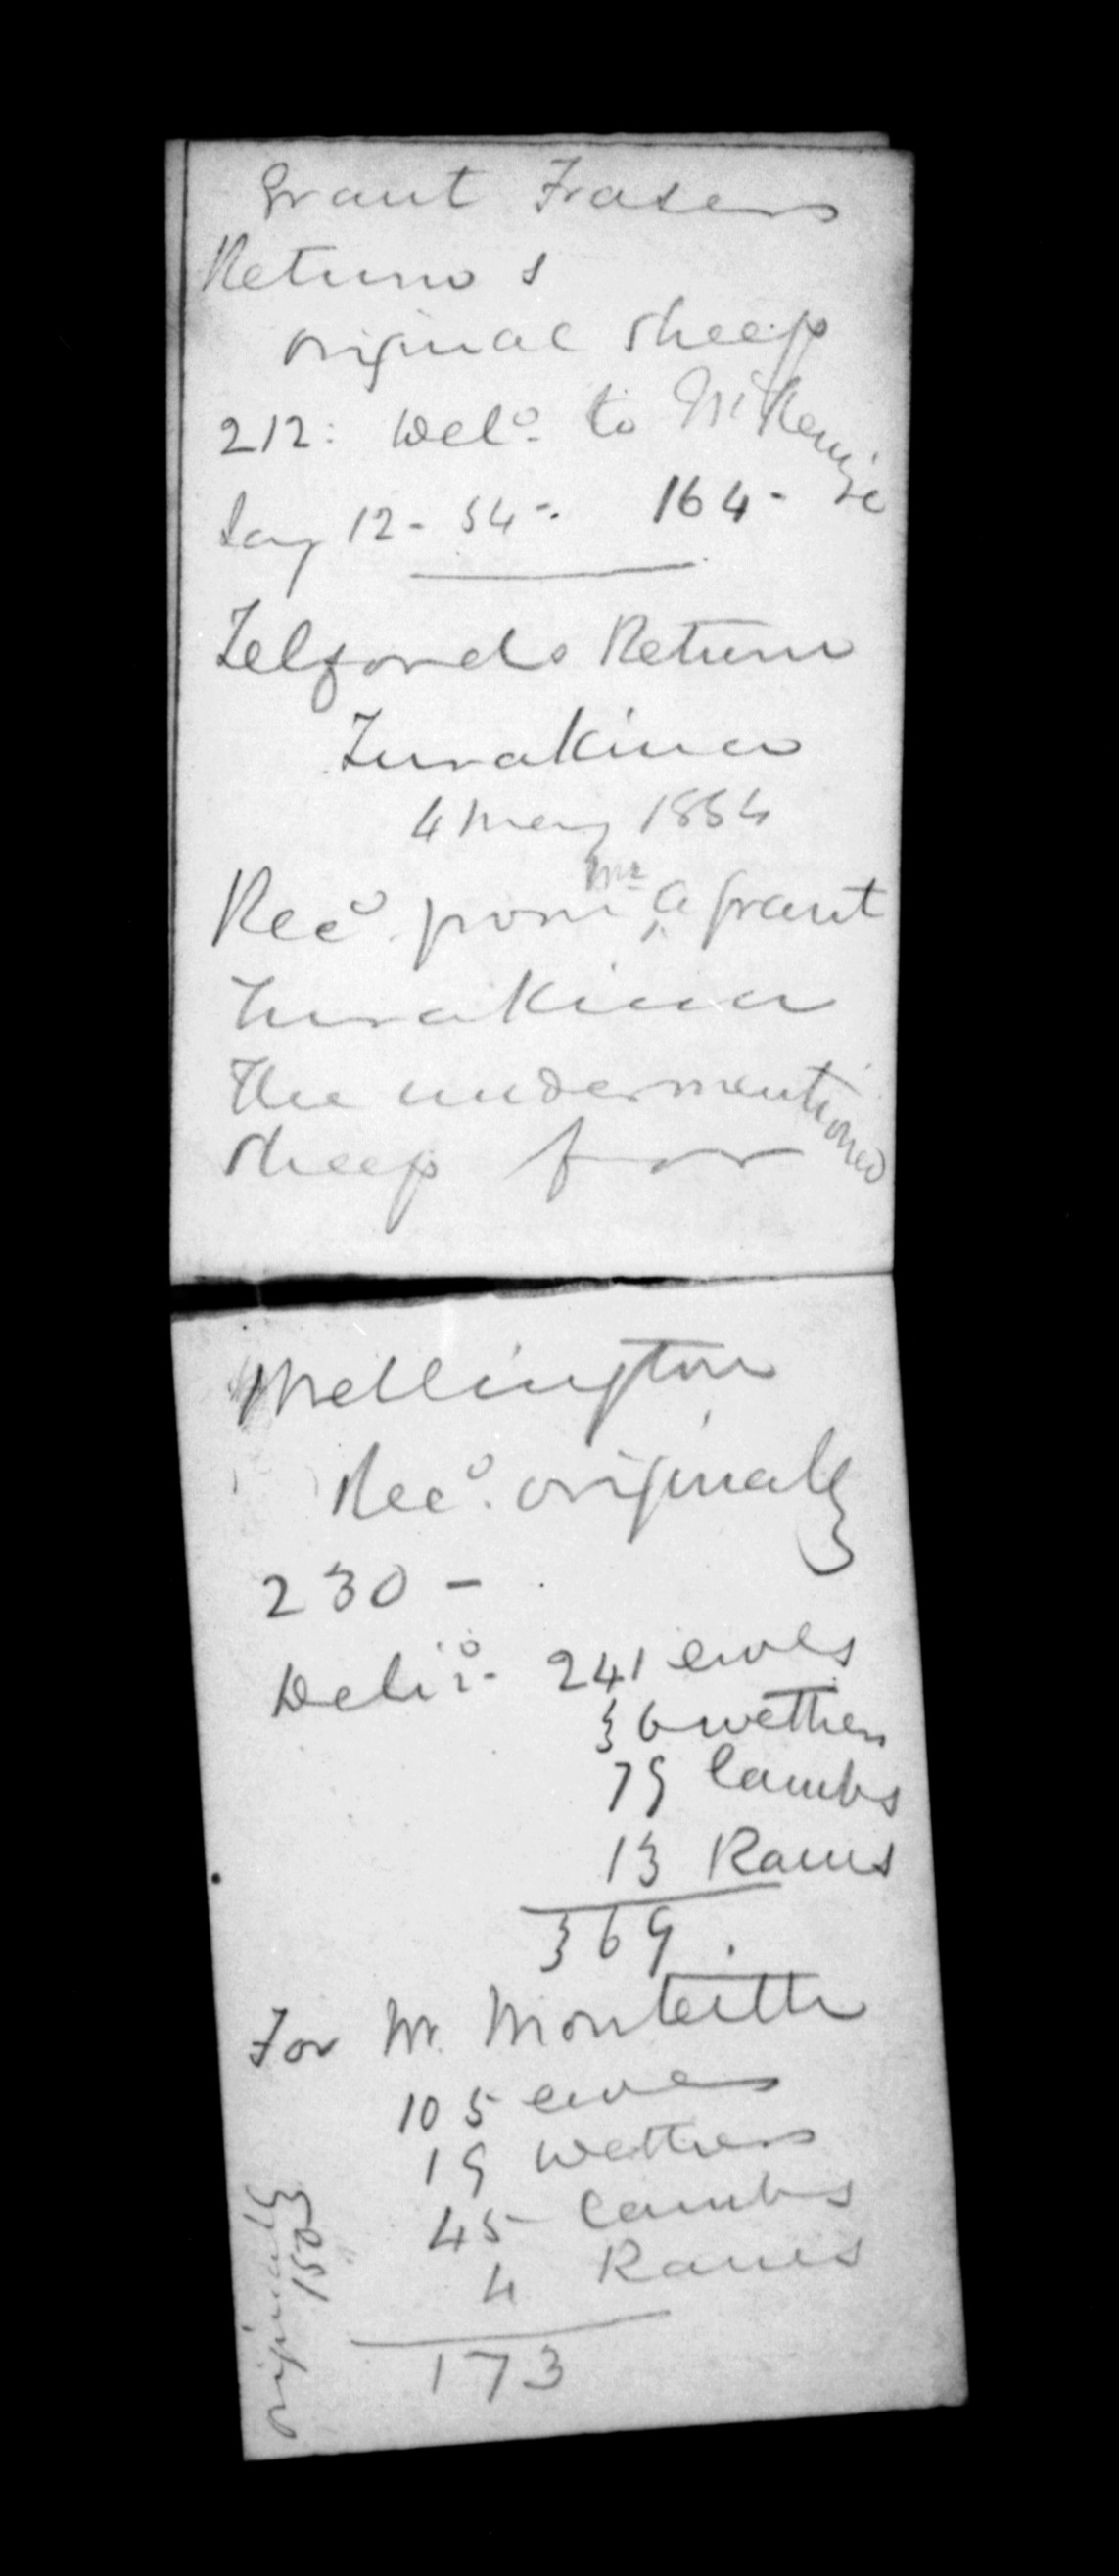 Grant Frasers
Returns
original sheep
212: Delᵈ. to McKenzie
Say 12 - 54 -. 164 -
Telfords Return
Turakina
4 May 1854
Recᵈ. from Mr A Grant
Turakina
the undermentioned
sheep for
Wellington
Recᵈ. originally
230 -
Delivᵈ. 241 ewes
36 wethers
79 lambs
13 Rams
369.
For Mr. Monteith
105 ewes
19 wethers
45 lambs
4 Rams
173
originally
150